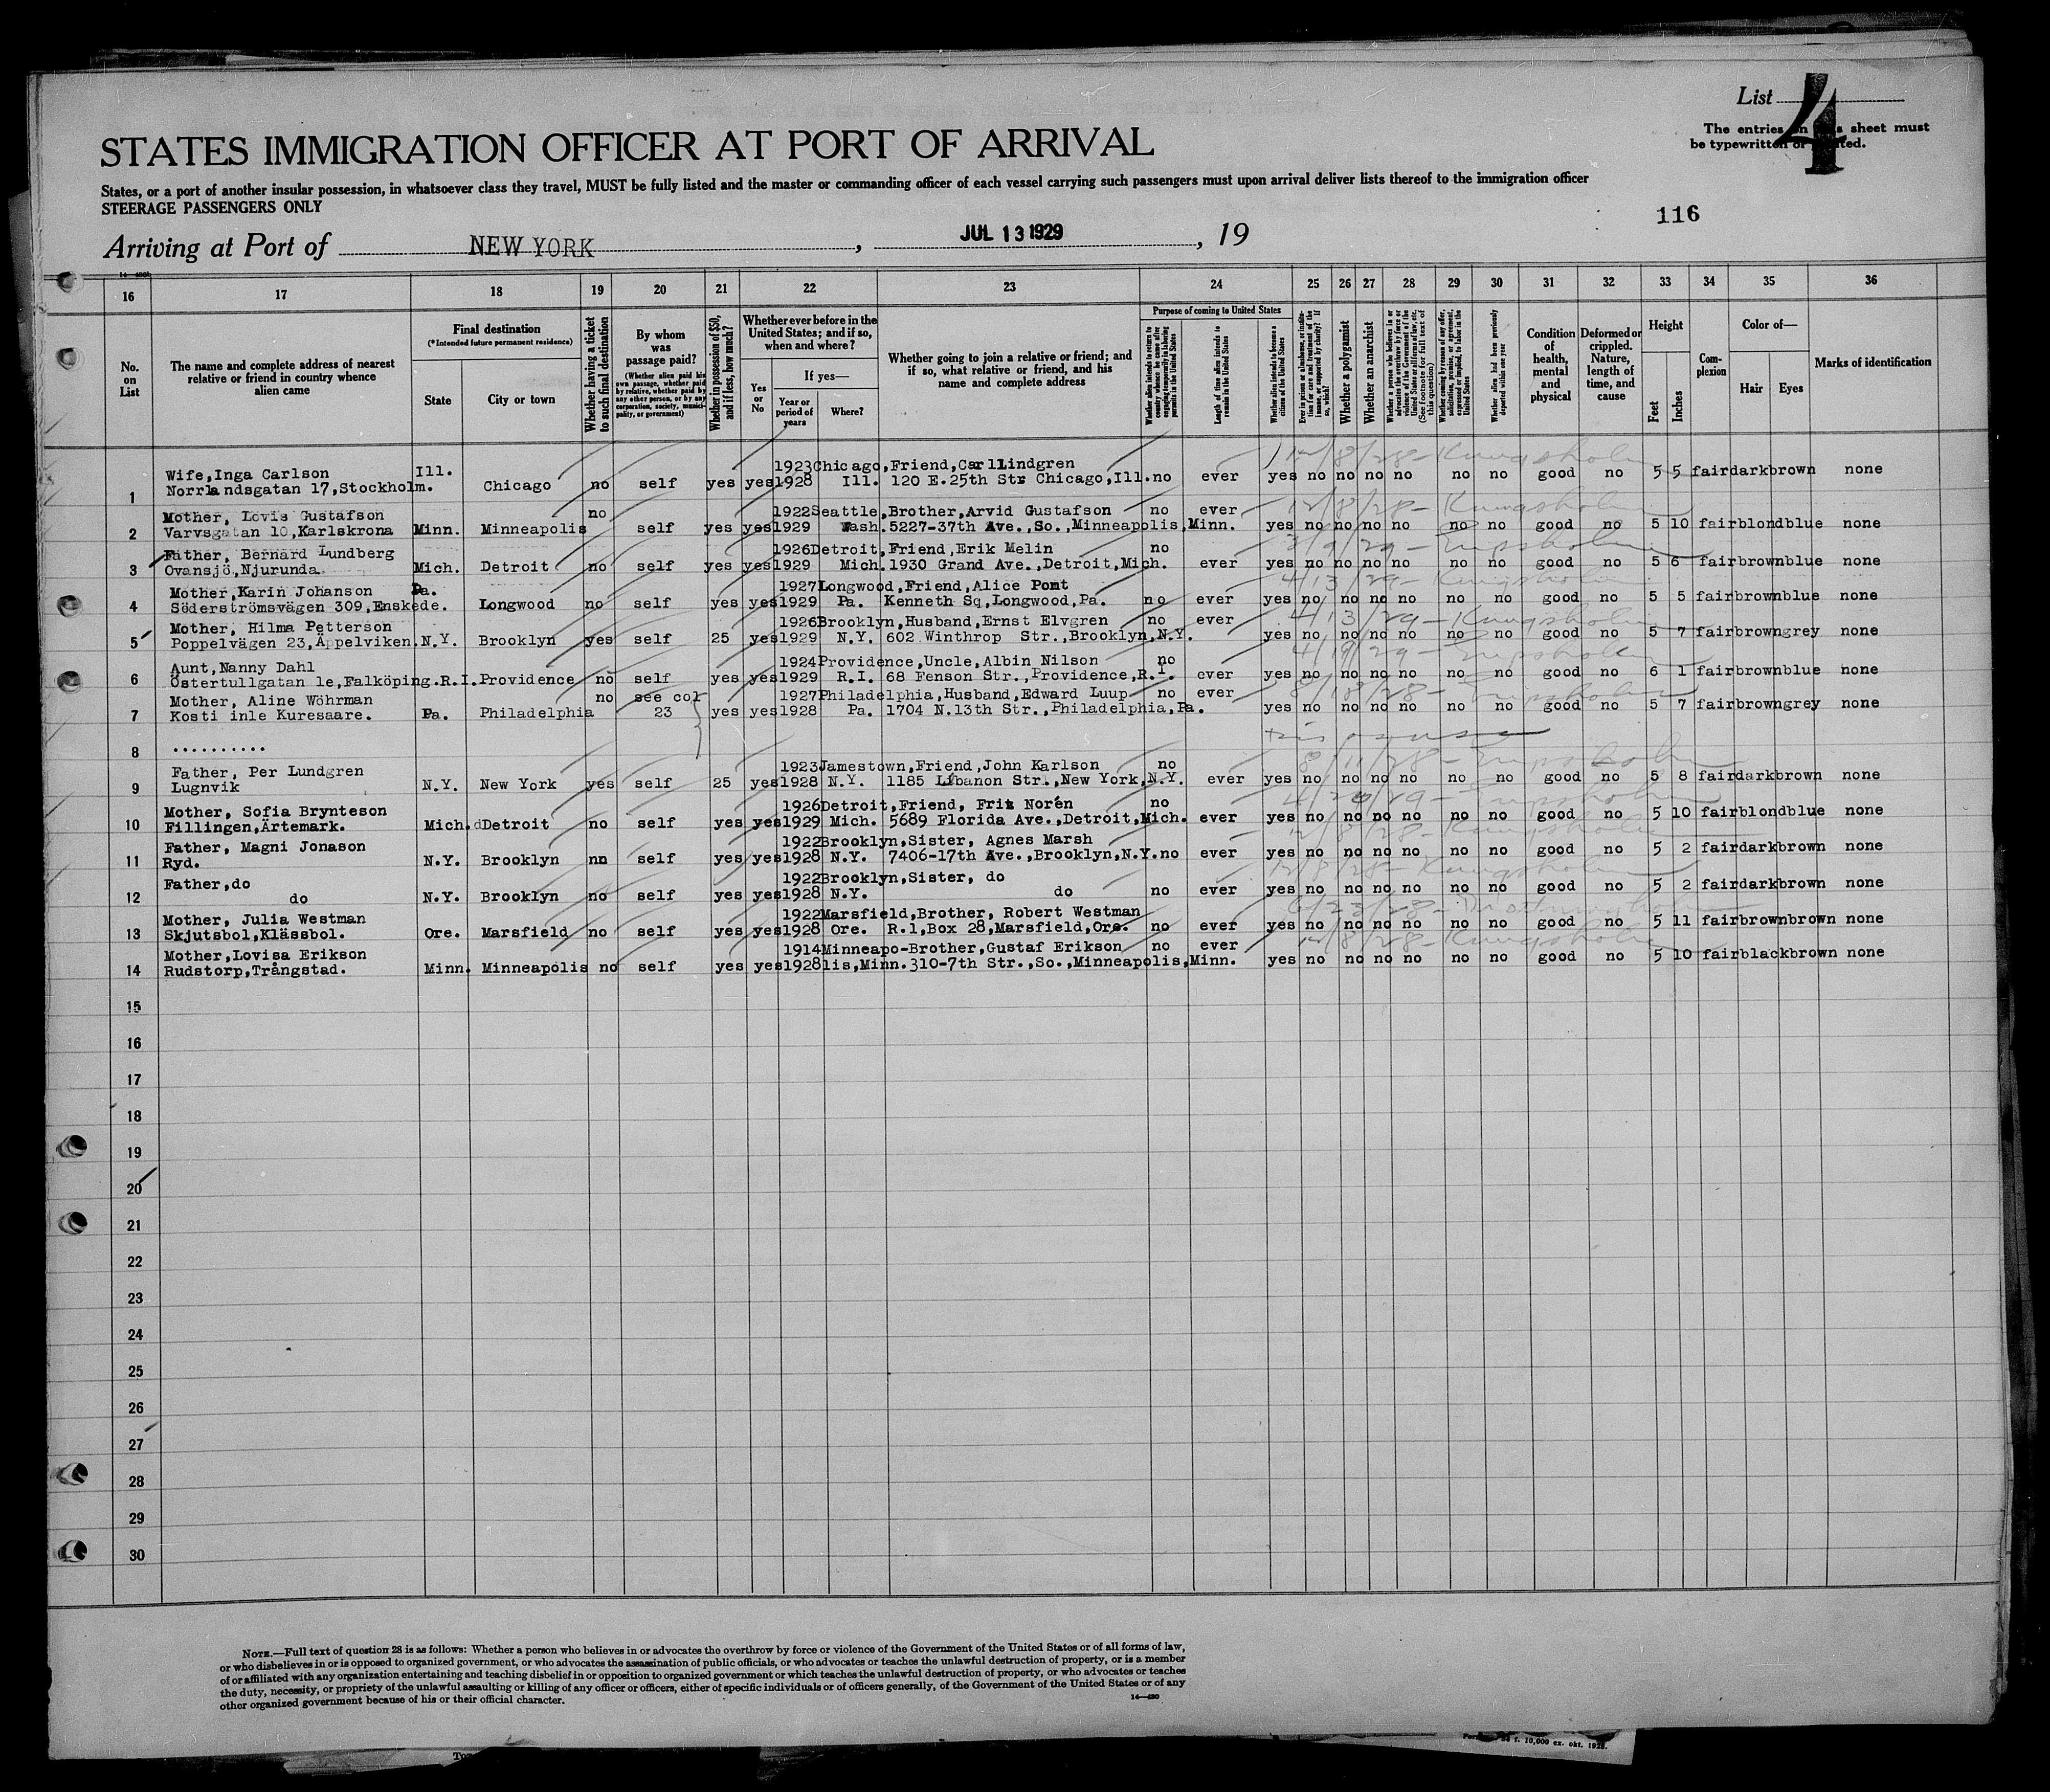 List 4
The entries on this sheet must
be typewritten or printed.
STATES IMMIGRATION OFFICER AT PORT OF ARRIVAL
States, or a port of another insular possession, in whatsoever class they travel, MUST be fully listed and the master or commanding officer of each vessel carrying such passengers must upon arrival deliver lists thereof to the immigration officer
STEERAGE PASSENGERS ONLY
116
Arriving at Port of NEW YORK, JUL 13 1929, 19
16 17 18 19 20 21 22 23 24 25 26 27 28 29 30 31 32 33 34 35 36
No. on List
The name and complete address of nearest relative or friend in country whence alien came
Final destination
(*Intended future permanent residence)
State
City or town
Whether having a ticket to such final destination
By whom was passage paid?
(Whether alien paid his own passage, whether paid by relative, whether paid by any other person, or by any corporation, society, municipality, or government)
Whether in possession of $50, and if less, how much?
Whether ever before in the United States; and if so, when and where?
Yes or No
If yes—
Year or period of years
Where?
Whether going to join a relative or friend; and if so, what relative or friend, and his name and complete address
Purpose of coming to United States
Length of time alien intends to remain in the United States
Whether alien intends to become a citizen of the United States
Whether a polygamist
Whether an anarchist
Condition of health, mental and physical
Deformed or crippled. Nature, length of time, and cause
Height
Feet
Inches
Complexion
Color of—
Hair
Eyes
Marks of identification
Wife,Inga Carlson Ill. 1923Chicago,Friend,CarlLindgren
1 Norrlandsgatan 17,Stockholm. Chicago no self yes yes1928 Ill. 120 E.25th Str Chicago,Ill.no ever yes no no no no no no good no 5 5 fairdarkbrown none
12/8/28-Kungsholm
Mother, Lovis Gustafson no 1922Seattle,Brother,Arvid Gustafson no ever
2 Varvsgatan 10,Karlskrona Minn. Minneapolis self yes yes1929 Wash.5227-37th Ave.,So.,Minneapolis,Minn. yes no no no no no no good no 5 10 fairblondblue none
3/9/29-Gripsholm
Father, Bernard Lundberg 1926Detroit,Friend,Erik Melin no
3 Ovansjö,Njurunda Mich. Detroit no self yes yes1929 Mich.1930 Grand Ave.,Detroit,Mich. ever yes no no no no no no good no 5 6 fairbrownblue none
4/13/29-Kungsholm
Mother,Karin Johanson Pa. 1927Longwood,Friend,Alice Pont
4 Söderströmsvägen 309,Enskede. Longwood no self yes yes1929 Pa. Kenneth Sq,Longwood,Pa. no ever yes no no no no no no good no 5 5 fairbrownblue none
4/13/29-Kungsholm
Mother, Hilma Petterson 1926Brooklyn,Husband,Ernst Elvgren no ever
5 Poppelvägen 23,Äppelviken.N.Y. Brooklyn yes self 25 yes1929 N.Y. 602 Winthrop Str.,Brooklyn,N.Y. yes no no no no no no good no 5 7 fairbrowngrey none
4/19/29-Gripsholm
Aunt,Nanny Dahl 1924Providence,Uncle,Albin Nilson no
6 Östertullgatan 1e,Falköping.R.I.Providence no self yes yes1929 R.I. 68 Fenson Str.,Providence,R.I. ever yes no no no no no no good no 6 1 fairbrownblue none
8/18/28-Gripsholm
Mother, Aline Wöhrman no see col 1927Philadelphia,Husband,Edward Luup no ever
7 Kosti inle Kuresaare. Pa. Philadelphia 23 yes yes1928 Pa. 1704 N.13th Str.,Philadelphia,Pa. yes no no no no no no good no 5 7 fairbrowngrey none
8 ..........
8/11/28-Gripsholm
Father, Per Lundgren 1923Jamestown,Friend,John Karlson no
9 Lugnvik N.Y. New York yes self 25 yes1928 N.Y. 1185 Libanon Str.,New York,N.Y. ever yes no no no no no no good no 5 8 fairdarkbrown none
Mother, Sofia Brynteson 1926Detroit,Friend, Fritz Norén no
10 Fillingen,Ärtemark. Mich.dDetroit no self yes yes1929 Mich. 5689 Florida Ave.,Detroit,Mich. ever yes no no no no no no good no 5 10 fairblondblue none
12/8/28-Kungsholm
Father, Magni Jonason 1922Brooklyn,Sister, Agnes Marsh
11 Ryd. N.Y. Brooklyn nn self yes yes1928 N.Y. 7406-17th Ave.,Brooklyn,N.Y.no ever yes no no no no no no good no 5 2 fairdarkbrown none
12/8/28-Kungsholm
Father,do 1922Brooklyn,Sister, do
12 do N.Y. Brooklyn no self yes yes1928 N.Y. do no ever yes no no no no no no good no 5 2 fairdarkbrown none
Mother, Julia Westman 1922Marsfield,Brother, Robert Westman
13 Skjutsbol,Klässbol. Ore. Marsfield no self yes yes1928 Ore. R.1,Box 28,Marsfield,Ore. no ever yes no no no no no no good no 5 11 fairbrownbrown none
12/8/28-Kungsholm
Mother,Lovisa Erikson 1914Minneapo-Brother,Gustaf Erikson no ever
14 Rudstorp,Trångstad. Minn. Minneapolis no self yes yes1928lis,Minn.310-7th Str.,So.,Minneapolis,Minn. yes no no no no no no good no 5 10 fairblackbrown none
15
16
17
18
19
20
21
22
23
24
25
26
27
28
29
30
NOTE.—Full text of question 28 is as follows: Whether a person who believes in or advocates the overthrow by force or violence of the Government of the United States or of all forms of law,
or who disbelieves in or is opposed to organized government, or who advocates the assassination of public officials, or who advocates or teaches the unlawful destruction of property, or is a member
of or affiliated with any organization entertaining and teaching disbelief in or opposition to organized government or which teaches the unlawful destruction of property, or who advocates or teaches
the duty, necessity, or propriety of the unlawful assaulting or killing of any officer or officers, either of specific individuals or of officers generally, of the Government of the United States or of any
other organized government because of his or their official character.
14—480